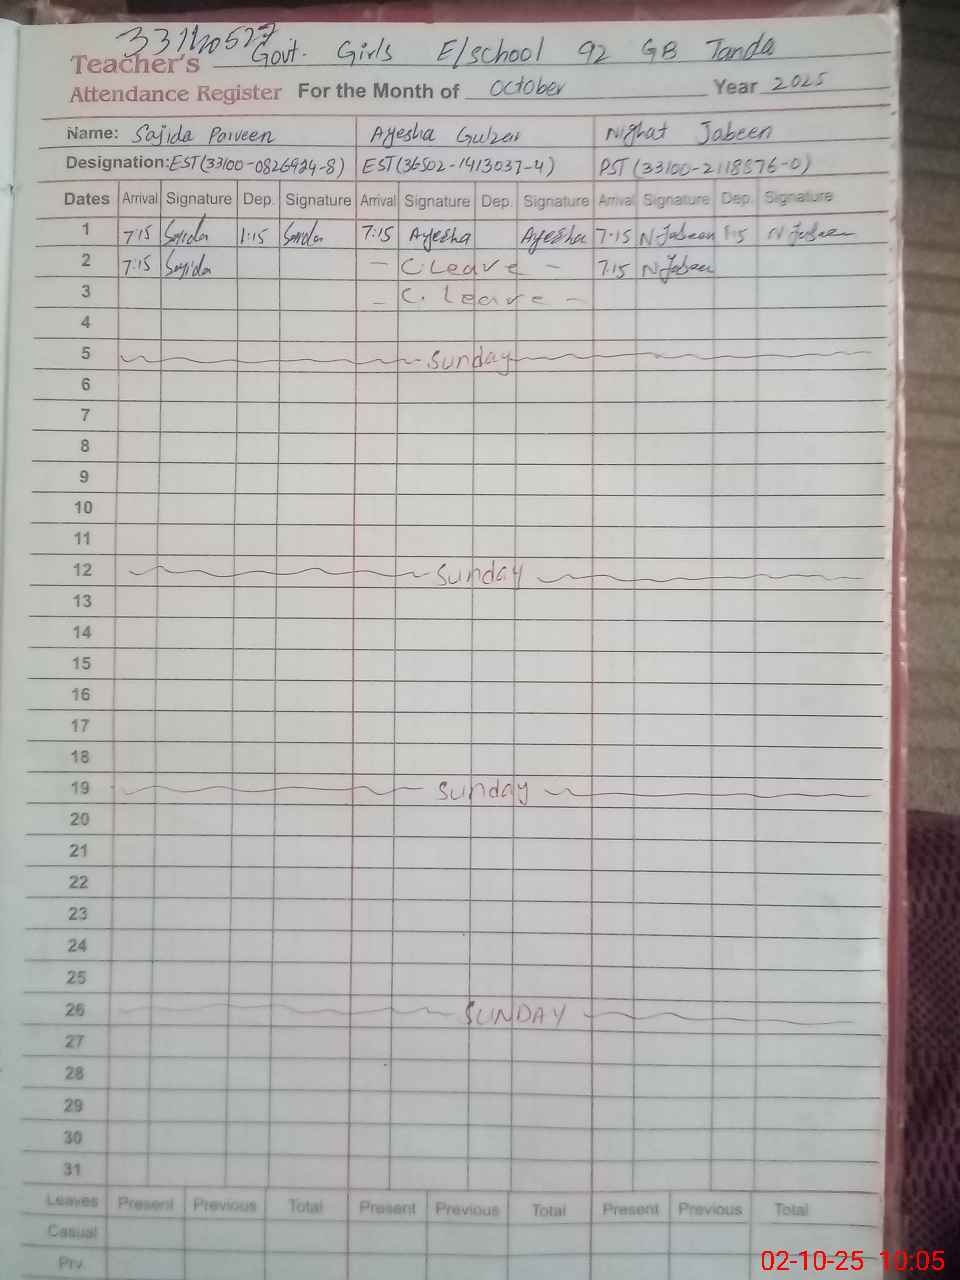 33120527
Teacher's Govt. Girls E/school 92 GB Tanda
Attendance Register For the Month of October Year 2025
Name: Sajida Parveen Ayesha Gulzar Nighat Jabeen
Designation: EST (33100-0826924-8) EST (36502-1413037-4) PST (33100-2118876-0)
Dates Arrival Signature Dep. Signature Arrival Signature Dep. Signature Arrival Signature Dep. Signature
1 7:15 Sajida 1:15 Sajida 7:15 Ayesha Ayesha 7-15 N Jabeen 1:15 N Jabeen
2 7:15 Sajida - C Leave - 7.15 N Jabeen
3 - C. leave -
4
5 Sunday
6
7
8
9
10
11
12 Sunday
13
14
15
16
17
18
19 Sunday
20
21
22
23
24
25
26 SUNDAY
27
28
29
30
31
Leaves Present Previous Total Present Previous Total Present Previous Total
Casual
Prv.
02-10-25 10:05